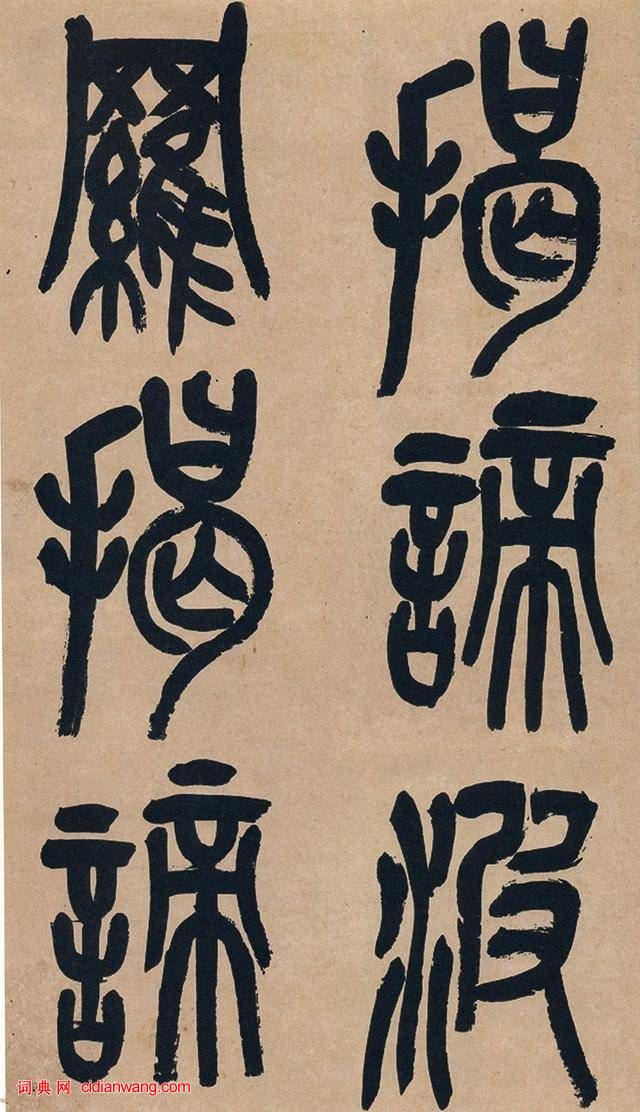 揭諦波
羅揭諦
词典网 cidianwang.com